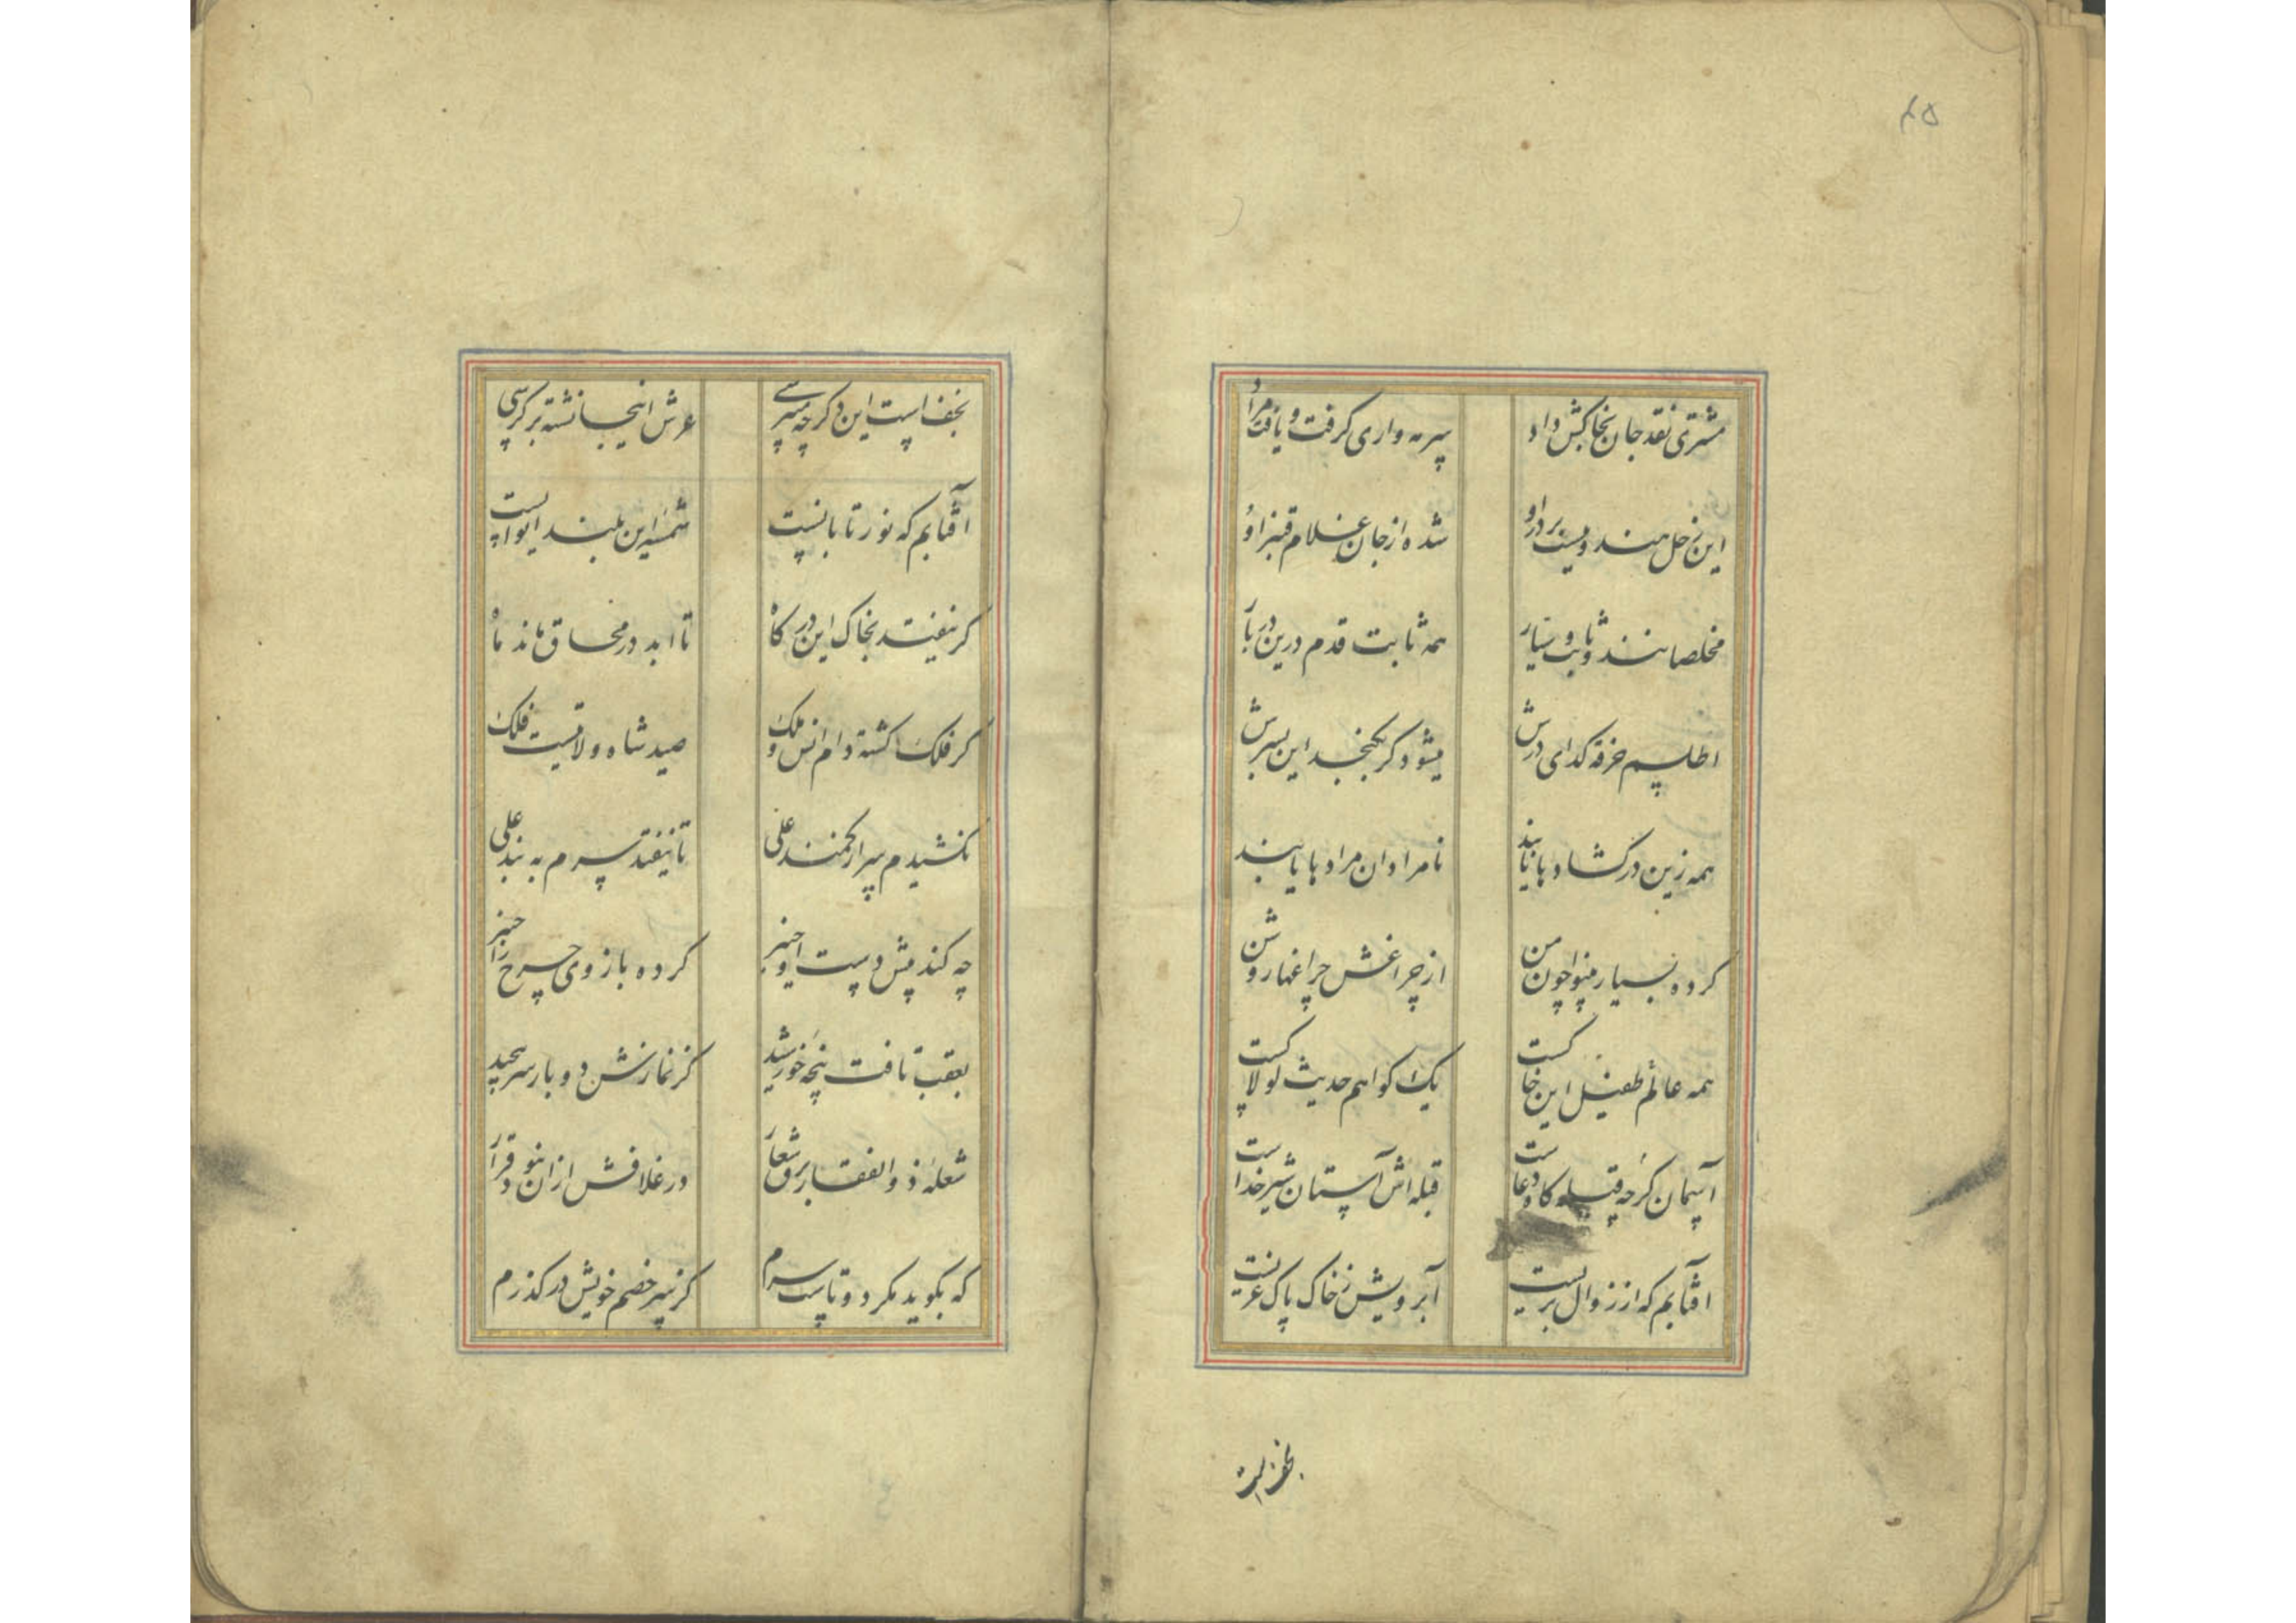 ۴۵
مشتری نقد جان بخاکش داد سرمه واری گرفت و یافت مراد
این زحل هندویست بر در او شده از جان غلام قنبر او
مخلصانند ثابت و سیار همه ثابت قدم درین دربار
اطلسم خرقه گدای درش میشود گر بگنجد این بسرش
همه زین در گشادها یابند نامرادان مرادها یابند
کرده بسیار بینوا چون من از چراغش چراغها روشن
همه عالم طفیل این خاکست یک گواهم حدیث لولاکست
آسمان گرچه قبله گاه دعاست قبله اش آستان شیر خداست
آفتابم که از زوال بریست آبرویش ز خاک پاک غریست
نجف است
نجف است این در گرچه میپرسی عرش اینجا نشسته بر کرسی
آفتابم که نور تابانست شمسه این بلند ایوانست
گر نیفتد بخاک این درگاه تا ابد در محاق ماند ماه
گر فلک گشته دام انس و ملک صید شاه ولایتست فلک
نکشیدم سر از کمند علی تا نیفتد سرم به بند علی
چه کند پیش دست او خنبر کرده بازوی چرخ را چنبر
بعقب تافت پنجه خورشید کز نمازش دو بار سر پیچید
شعله ذوالفقار برق شعار در غلافش ازان نبود قرار
که بگوید مگرد و تاست سرم کز سر خصم خویش در گذرم